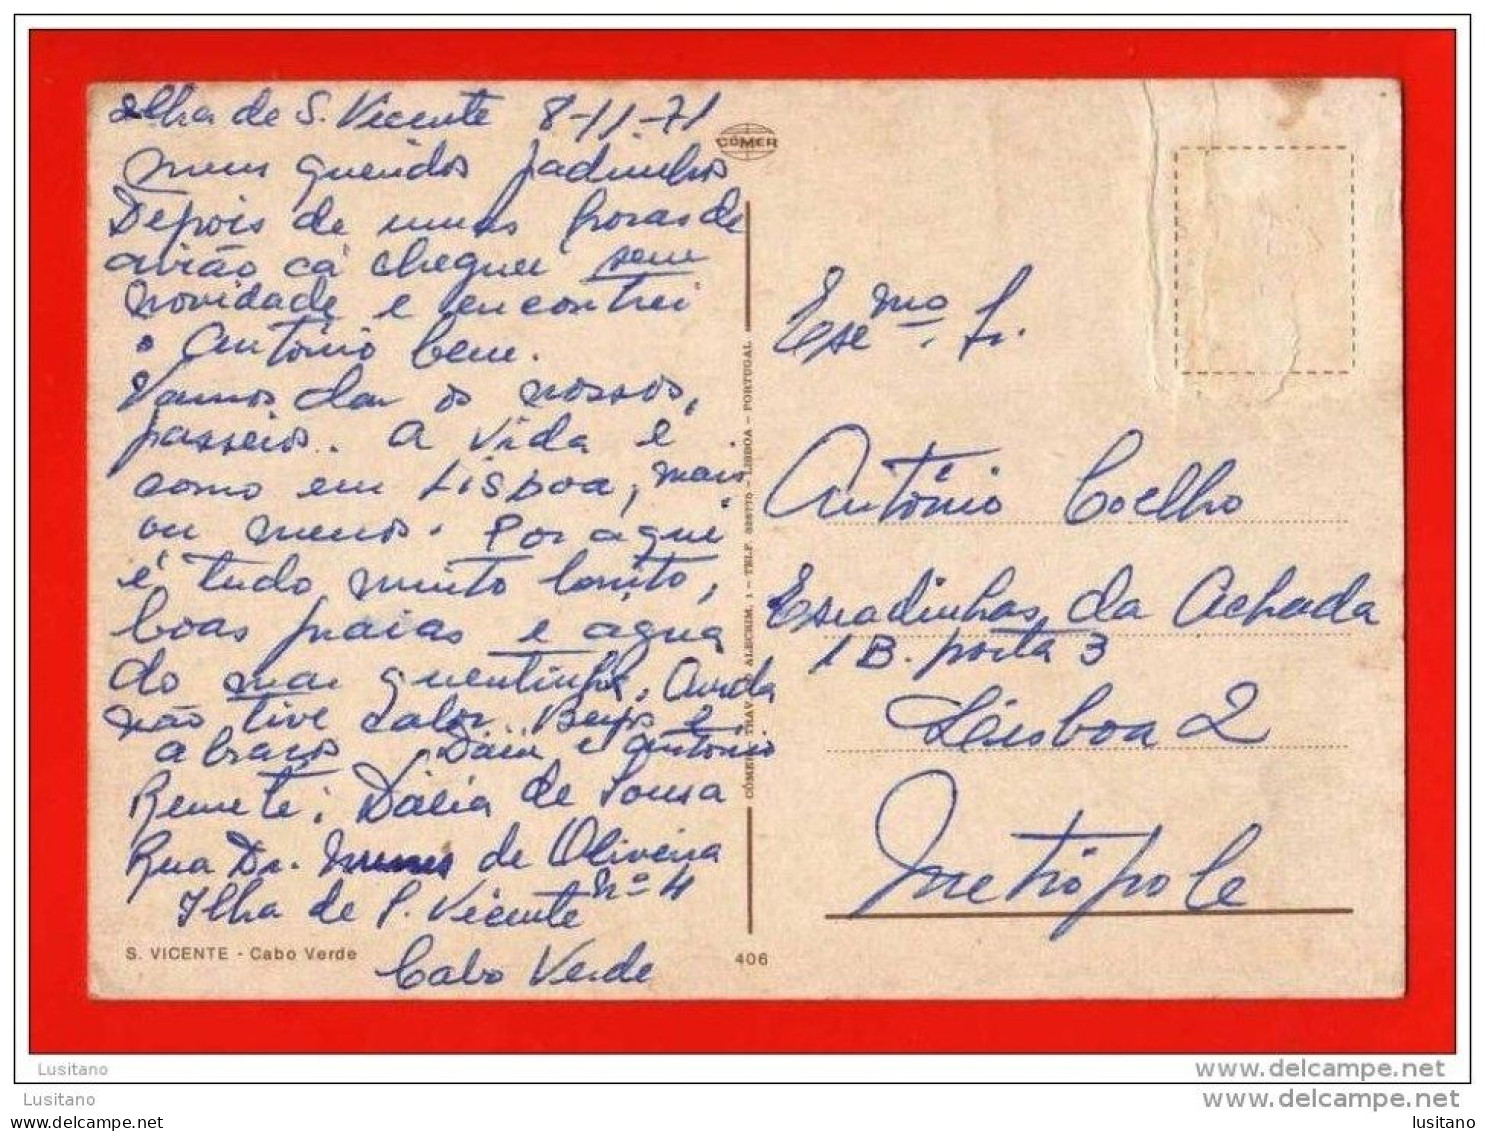 Ilha de S. Vicente 8-11-71
Meus queridos padinhos
Depois de umas horas de
avião cá cheguei sem
novidade e encontrei
o António bem.
Vamos dar os nossos,
passeios. A vida é
como em Lisboa, mais
ou menos. Por aqui
é tudo muito bonito,
boas praias e agua
do mar quentinha. Ainda
não tive calor. Beijos e
abraços Dália e António
Remete: Dália de Sousa
Rua Dr. Nunes de Oliveira
nº 4
Ilha de S. Vicente
Cabo Verde
S. VICENTE - Cabo Verde
406
CÓMER
CÓMER TRAV. ALECRIM, 1 - TELF. - LISBOA - PORTUGAL
Exmo. Sr.
António Coelho
Escadinhas da Achada
1 B. porta 3
Lisboa 2
Metrópole
Lusitano
www.delcampe.net
Lusitano
www.delcampe.net
Lusitano
lusitano